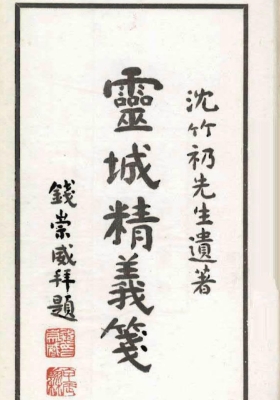 沈竹礽先生遺著
靈城精義箋
錢崇威拜題